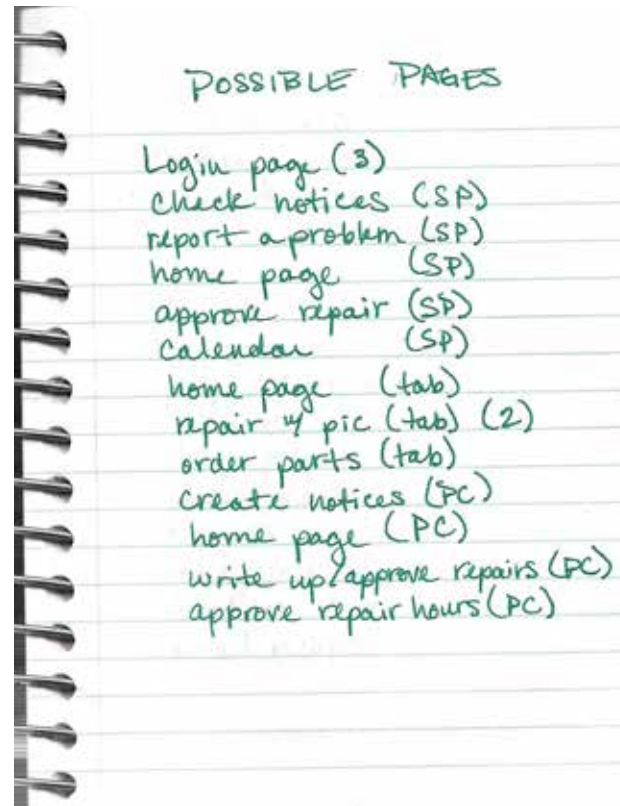 POSSIBLE PAGES
Login page (3)
check notices (SP)
report a problem (SP)
home page (SP)
approve repair (SP)
calendar (SP)
home page (tab)
repair w/ pic (tab) (2)
order parts (tab)
create notices (PC)
home page (PC)
write up/approve repairs (PC)
approve repair hours (PC)